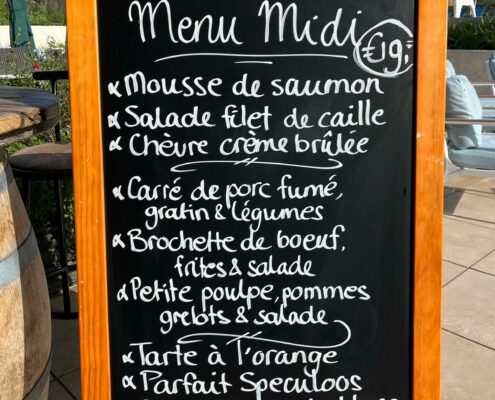 Menu Midi €19,-
∝ Mousse de saumon
∝ Salade filet de caille
∝ Chèvre crème brûlée
∝ Carré de porc fumé,
gratin & légumes
∝ Brochette de boeuf,
frites & salade
∝ Petite poulpe, pommes
grelots & salade
∝ Tarte à l'orange
∝ Parfait Speculoos